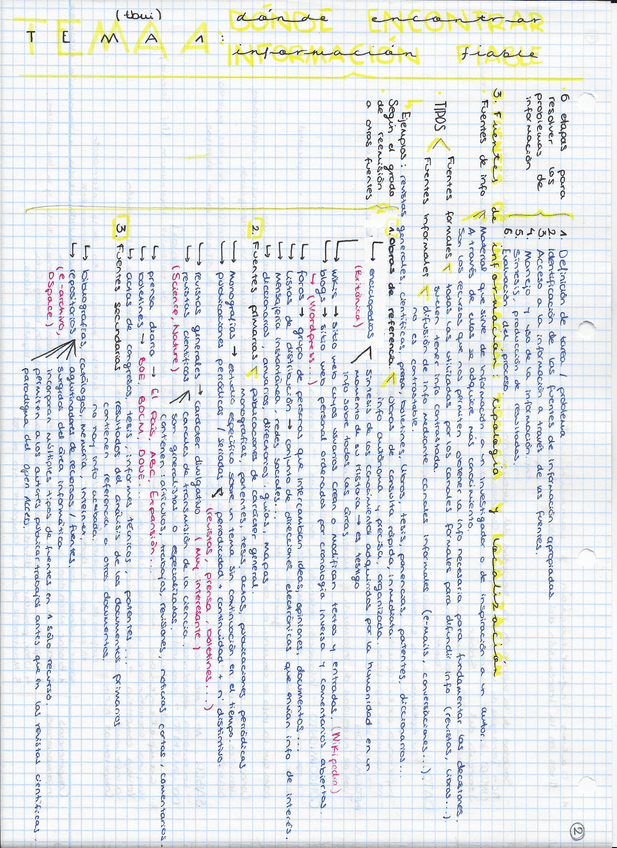 (tbui)
TEMA 1: DÓNDE ENCONTRAR
INFORMACIÓN FIABLE
dónde encontrar
información fiable
6 etapas para
resolver los
problemas de
información
1. Definición de tarea / problema
2. Identificación de las fuentes de información apropiadas
3. Acceso a la información a través de las fuentes.
4. Manejo y uso de la información.
5. Síntesis y producción de resultados
6. Evaluación del proceso.
3. Fuentes de información: tipología y localización
Fuentes de info
Material que sirve de información a un investigador o de inspiración a un autor.
A través de ellas se adquiere más conocimiento.
Son los recursos que nos permiten obtener la info necesaria para fundamentar las decisiones.
TIPOS
Fuentes formales
todas las utilizadas por los canales formales para difundir info (revistas, libros...)
suelen tener info contrastada
Fuentes informales
difusión de info mediante canales informales (e-mails, conversaciones...)
no es contrastable.
Ejemplos: revistas generales, científicas, prensa, boletines, libros, tesis, ponencias, patentes, diccionarios...
Según el grado
de reemisión
a otras fuentes
1. Obras de referencia
obras de consulta, rápida, inmediata.
info autónoma, precisa, organizada.
enciclopedias
(Británica)
síntesis de los conocimientos adquiridos por la humanidad en un
momento de su historia → es testigo
info sobre todas las áreas
Wikis → sitio web cuyos usuarios crean o modifican textos y entradas. (Wikipedia)
blogs → sitio web personal, ordenados por cronología inversa y comentarios abiertos.
(Wordpress)
foros → grupo de personas que intercambian ideas, opiniones, documentos...
listas de distribución → conjunto de direcciones electrónicas que envían info de interés.
Mensajería instantánea, redes sociales...
diccionarios, anuarios, directorios, guías, mapas
2. Fuentes primarias
publicaciones de carácter general
monografías, patentes, tesis, actas, publicaciones periódicas
Monografías → estudio específico sobre un tema sin continuación en el tiempo.
publicaciones periódicas / seriadas
periodicidad + continuidad + nº distintivo.
(revistas, prensa, boletines...)
revistas generales → carácter divulgativo (Muy interesante)
revistas científicas
(Science, Nature)
canales de transmisión de la ciencia.
son generalistas o especializadas.
contienen artículos, trabajos, revisiones, noticias cortas, comentarios.
prensa diaria → El País, ABC, Expansión...
boletines → BOE, BOCM, DOUE...
actas de congresos, tesis, informes técnicos, patentes...
3. Fuentes secundarias
resultados del análisis de los documentos primarios
contienen referencia a otros documentos.
no hay info acabada.
bibliografías, catálogos, memorias, internet.
repositorios
(e-archivo,
Dspace)
agrupaciones de recursos / fuentes.
surgidos del área informática.
incorporan múltiples tipos de fuentes en 1 sólo recurso
permiten a los autores publicar trabajos antes que en las revistas científicas.
paradigma del Open Access.
2